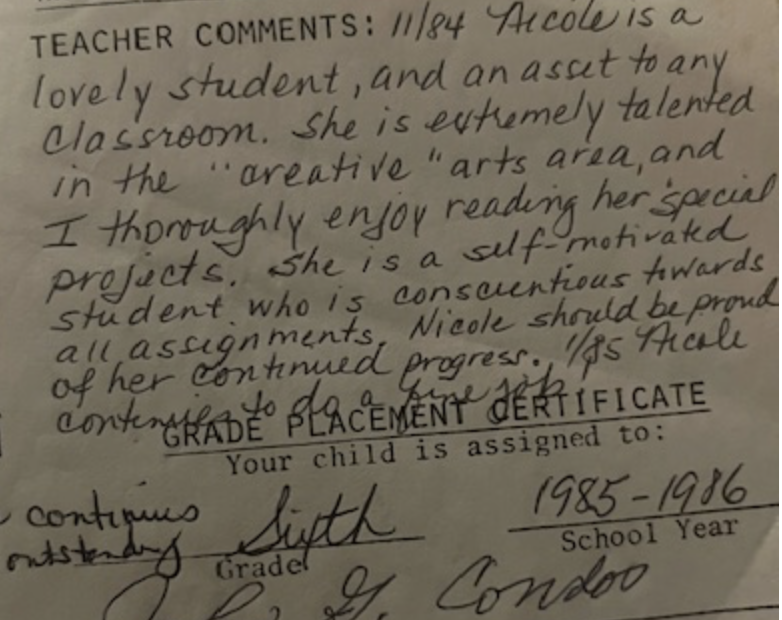 TEACHER COMMENTS: 11/84 Nicole is a
lovely student, and an asset to any
classroom. She is extremely talented
in the "creative" arts area, and
I thoroughly enjoy reading her special
projects. She is a self-motivated
student who is conscientious towards
all assignments. Nicole should be proud
of her continued progress. 1/85 Nicole
continues to do a fine job
GRADE PLACEMENT CERTIFICATE
Your child is assigned to:
continues
outstanding
Sixth
Grade
1985-1986
School Year
G. Condoo